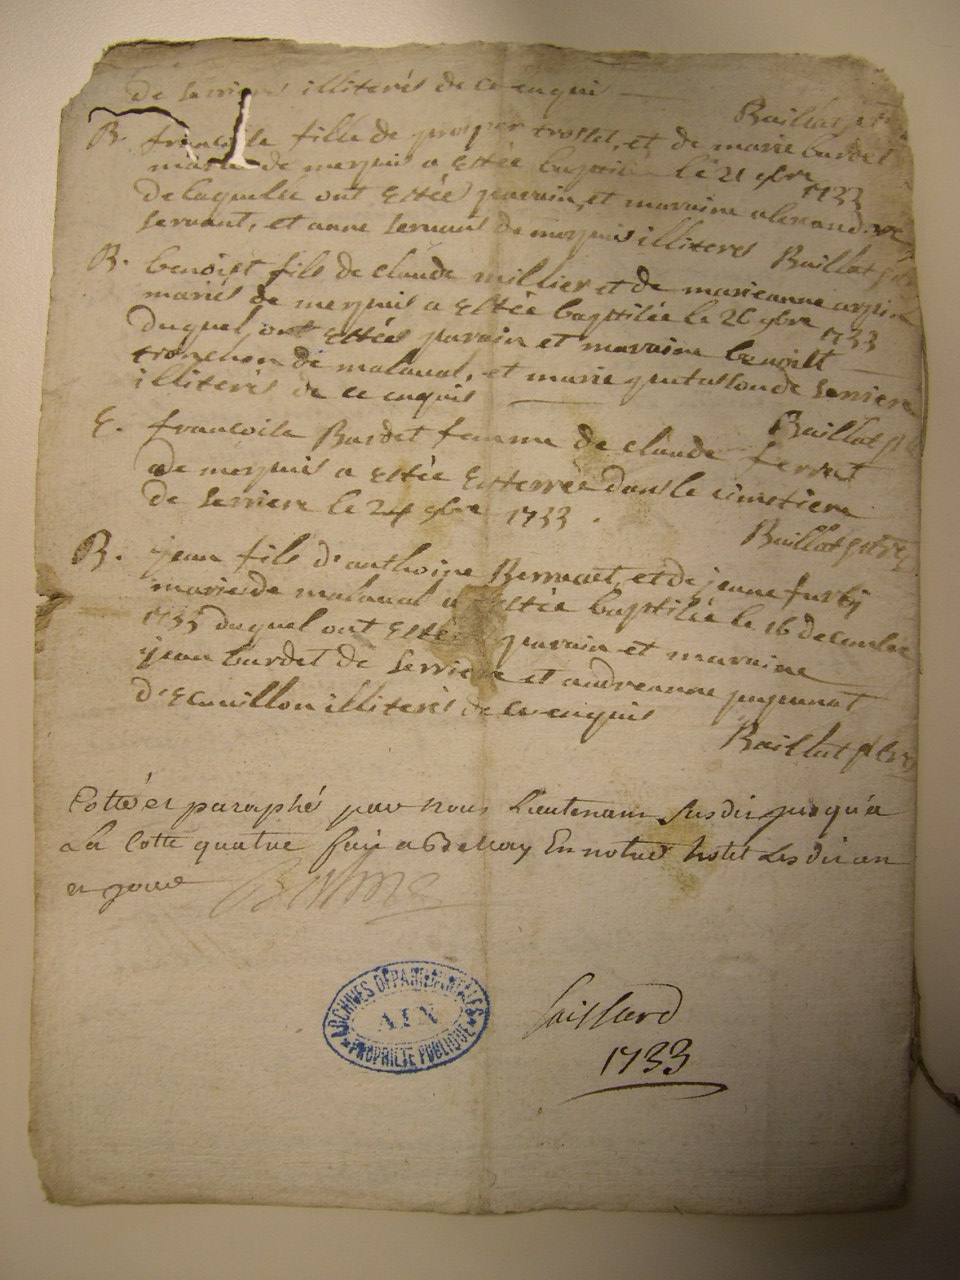 de serrieres illiterés de ce enquis
Baillat ptre
B. francoise fille de prosper trosset, et de marie burdet
mariés de merpuis a estée baptisée le 21 9bre 1733
de laquelle ont estée parain, et maraine alexandre
servant, et anne servant de merpuis illiteres Baillat ptre
B. benoist fils de claude millier et de marieanne arpin
mariés de merpuis a estée baptisée le 26 9bre 1733
duquel ont estées parain et maraine benoist
tronchon de malaval, et marie de serriere
illiterés de ce enquis
Baillat ptre
E. francoise Burdet femme de claude ferrat
de merpuis a estée Enterrée dans le cimetiere
de serriere le 24 9bre 1733.
Baillat ptre
B. jean fils d'anthoine et de jeanne
mariés de malaval a estée baptisée le 16 decembre
1733 duquel ont estée parain et maraine
jean burdet de serriere et andreanne pugunat
d'Ecuvillon illiterés de ce enquis
Baillat ptre
Cotté et paraphé par nous Lieutenant susdit jusqu'a
La Cotte quatre fait a Belley En notre hotel les dit an
et jour
ARCHIVES DÉPARTEMENTALES
AIN
PROPRIÉTÉ PUBLIQUE
Saillard
1733